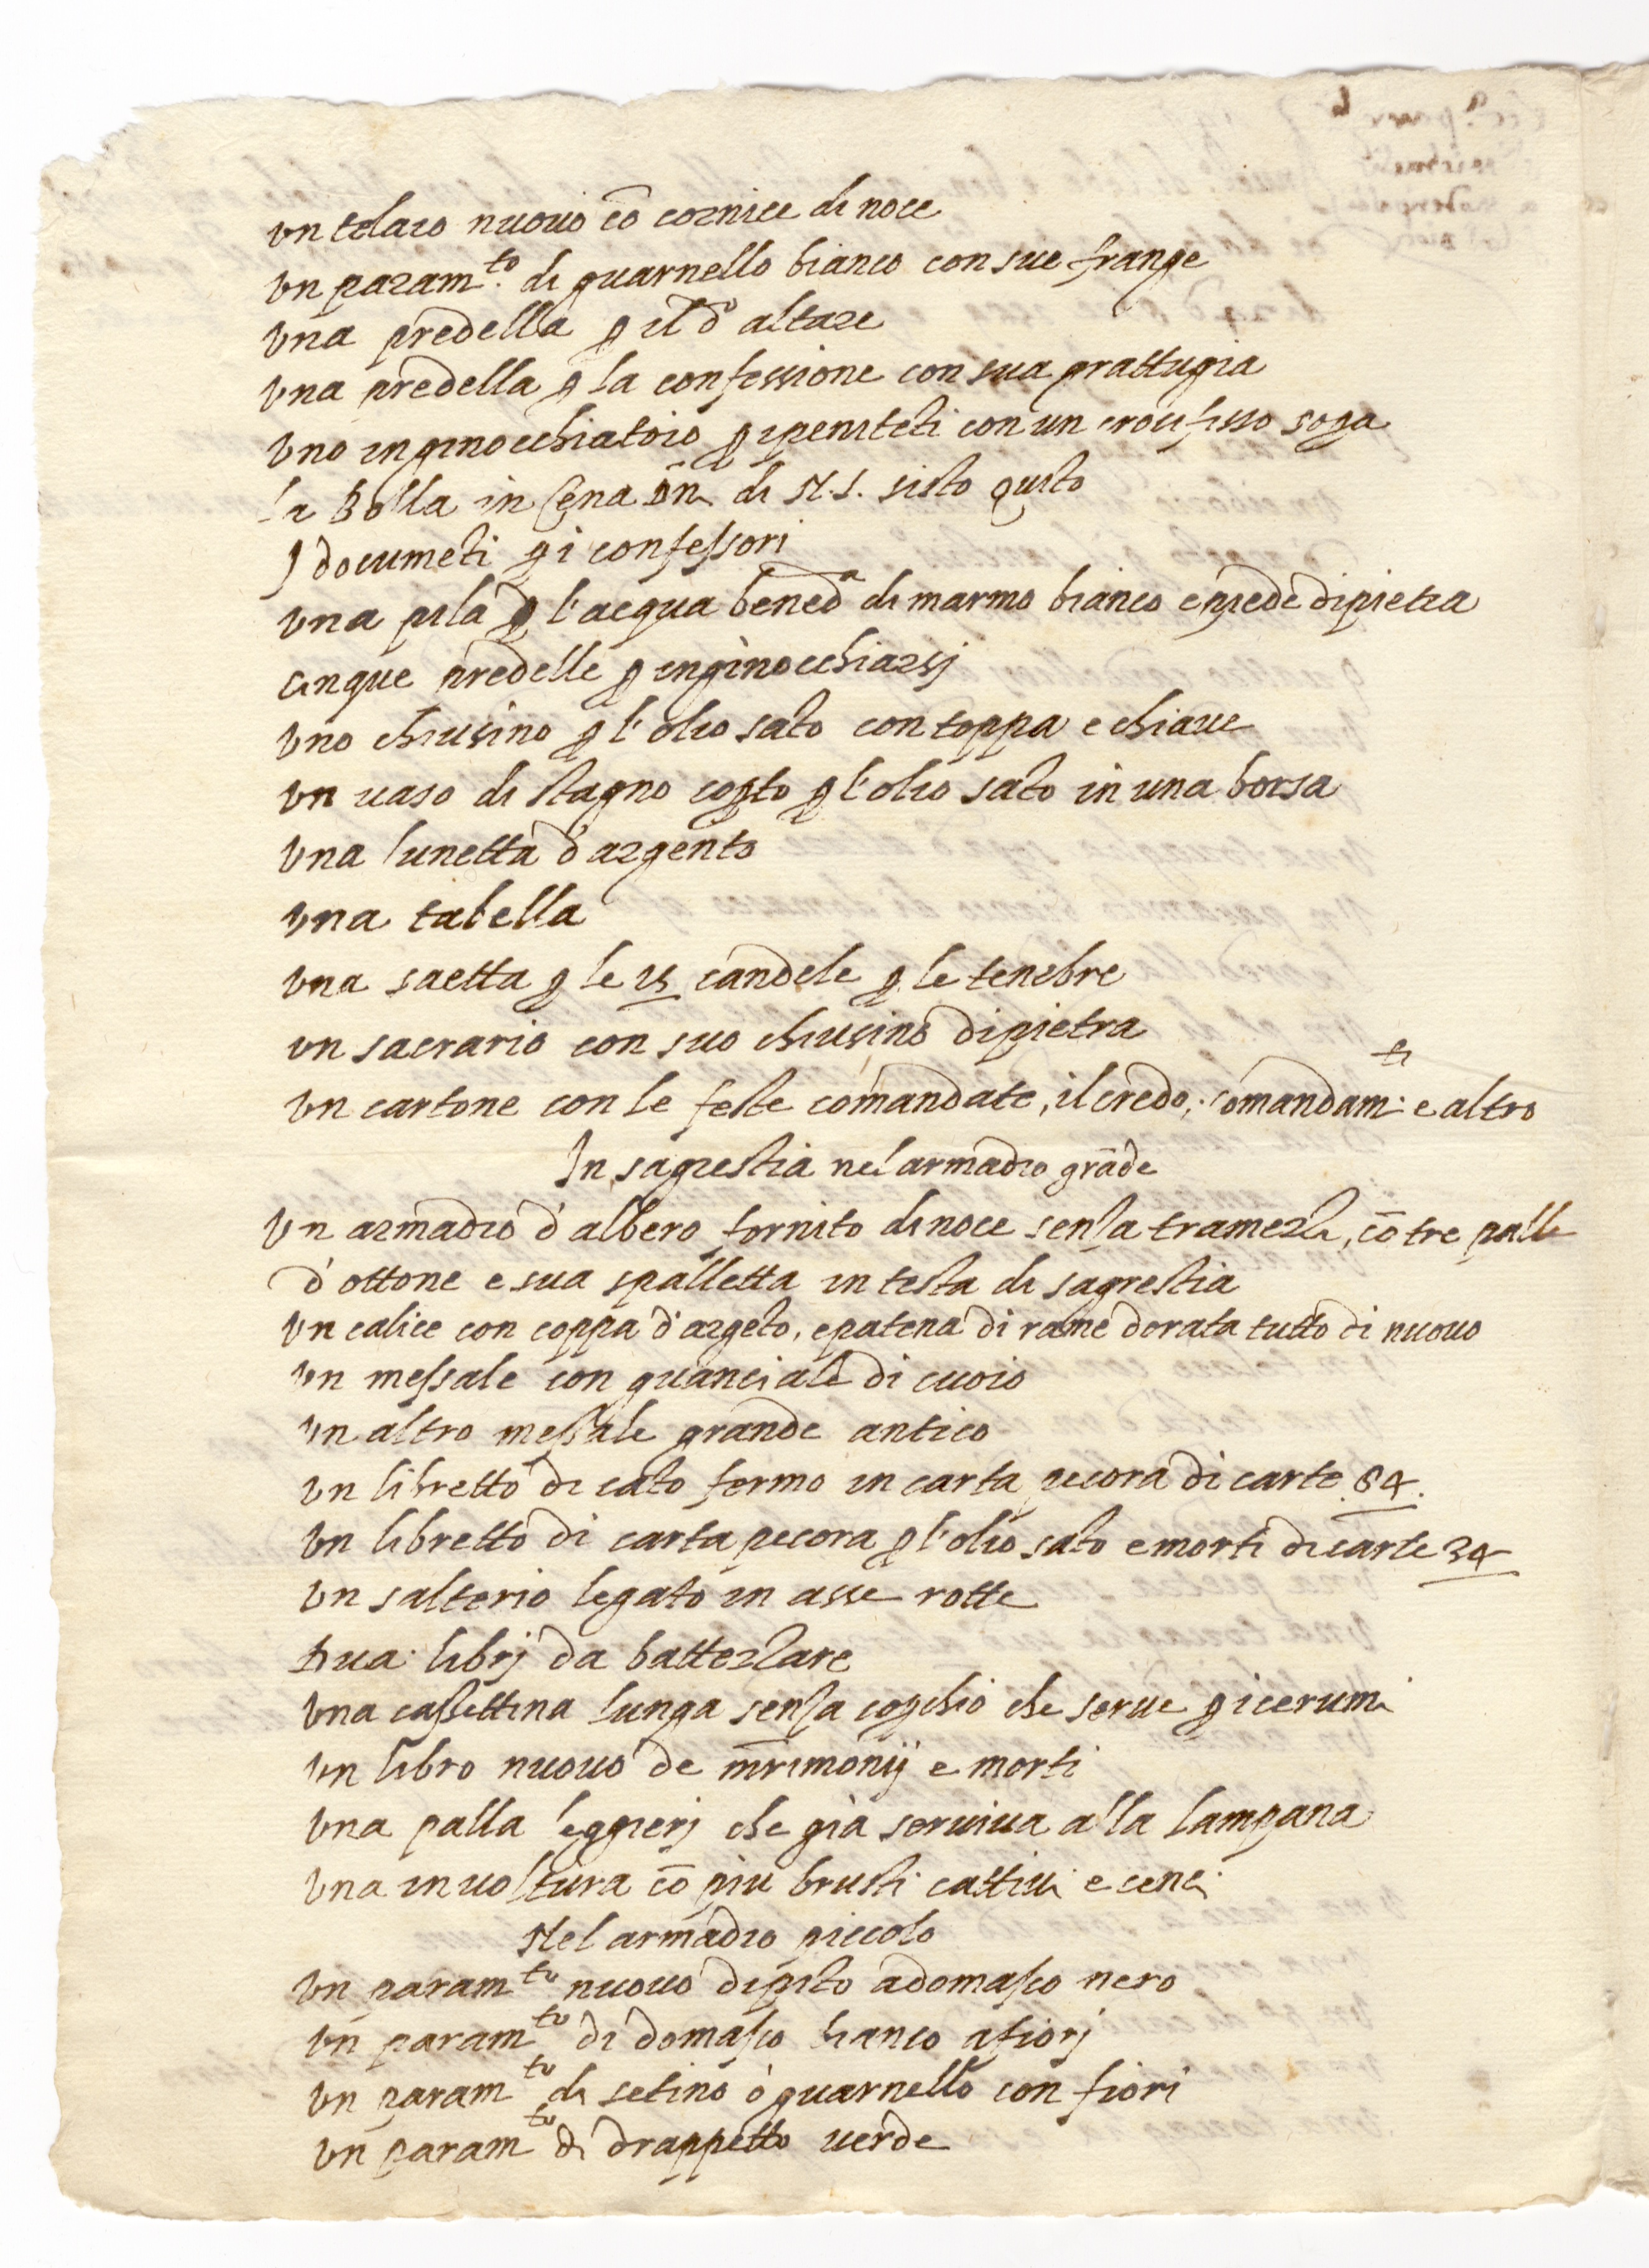 vn telaio nuouo cō cornice di noce
vn param.to di guarnello bianco con sue frange
vna predella p il do altare
vna predella p la confessione con sua grattugia
vno inginocchiatoio p i penitēti con un crocifisso sopa
la Bolla in Cena Dñi di N.S. sisto quīto
J documēti p i confessori
vna pila p l'acqua beneda di marmo bianco e piede di pietra
cinque predelle p inginocchiarsj
vno chiusino p l'olio sāto con toppa e chiaue
vn uaso di stagno copto p l'olio sāto in una borsa
vna lunetta d'argento
vna tabella
vna saetta p le 15 candele p le tenebre
vn sacrario con suo chiusino di pietra
vn cartone con le feste comandate, il credo, comandam.ti e altro
In sagrestia nel armadio grāde
vn armadio d'albero fornito di noce senza tramezzi, cō tre palle
d'ottone e sua spalletta in testa di sagrestia
vn calice con coppa d'argēto, e patena di rame dorata tutto di nuouo
vn messale con guanciale di cuoio
vn altro messale grande antico
vn libretto di cāto fermo in carta pecora di carte 84.
vn libretto di carta pecora p l'olio sāto e morti di carte 34
vn salterio legato in asse rotte
dua librj da battezzare
vna cassettina lunga senza copchio che serue p i cerumi
vn libro nuouo de mr̄imonij e morti
vna palla leggierj che già seruiua alla lampana
vna inuoltura cō più brusti cattiui e cenci
Nel armadio piccolo
vn param.to nuouo dipīto a domasco nero
vn param.to di domasco bianco a fiorj
vn param.to di setino ò guarnello con fiori
vn param.to di drappetto uerde